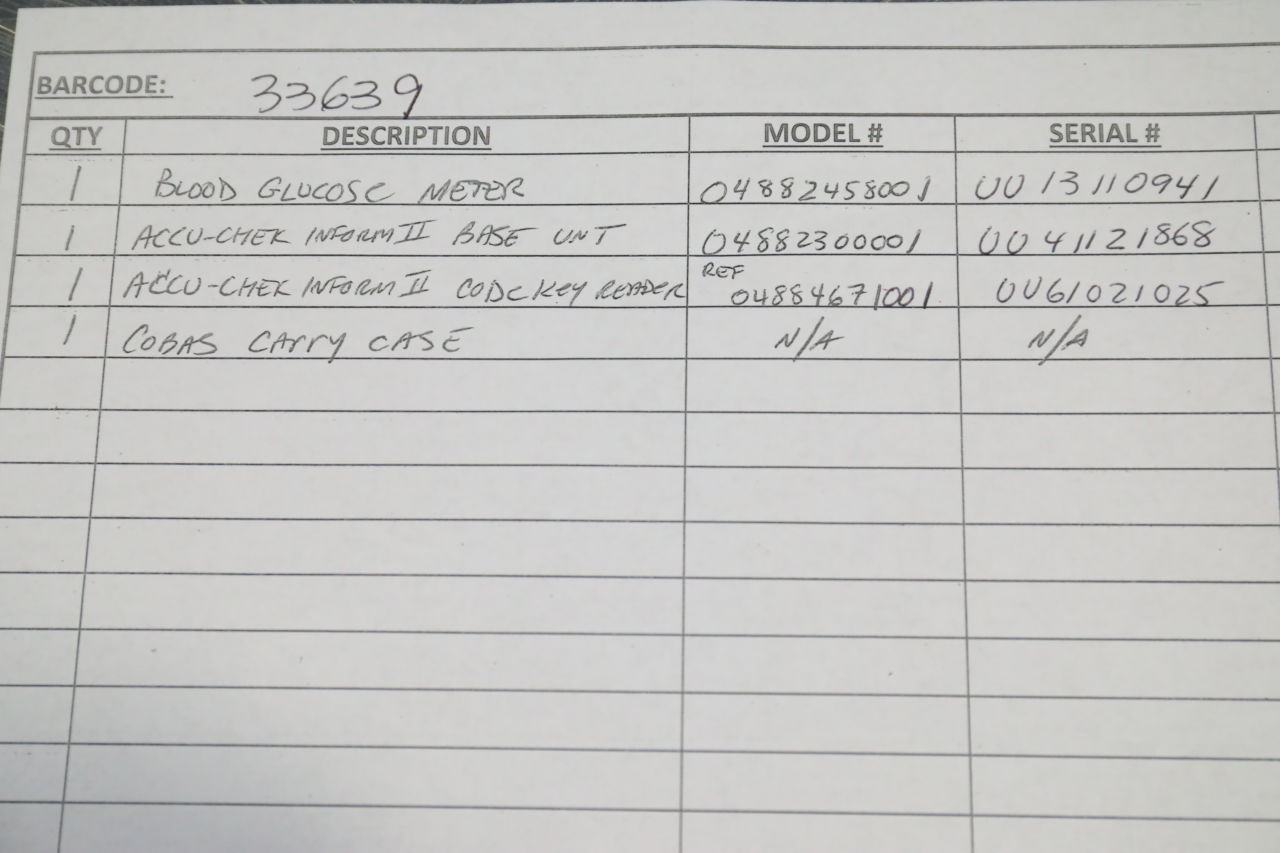 BARCODE: 33639
QTY DESCRIPTION MODEL # SERIAL #
1 BLOOD GLUCOSE METER 04882458001 UU13110941
1 ACCU-CHEK INFORM II BASE UNT 04882300001 UU41121868
1 ACCU-CHEK INFORM II CODE KEY READER REF 04884671001 UU61021025
1 COBAS CARRY CASE N/A N/A